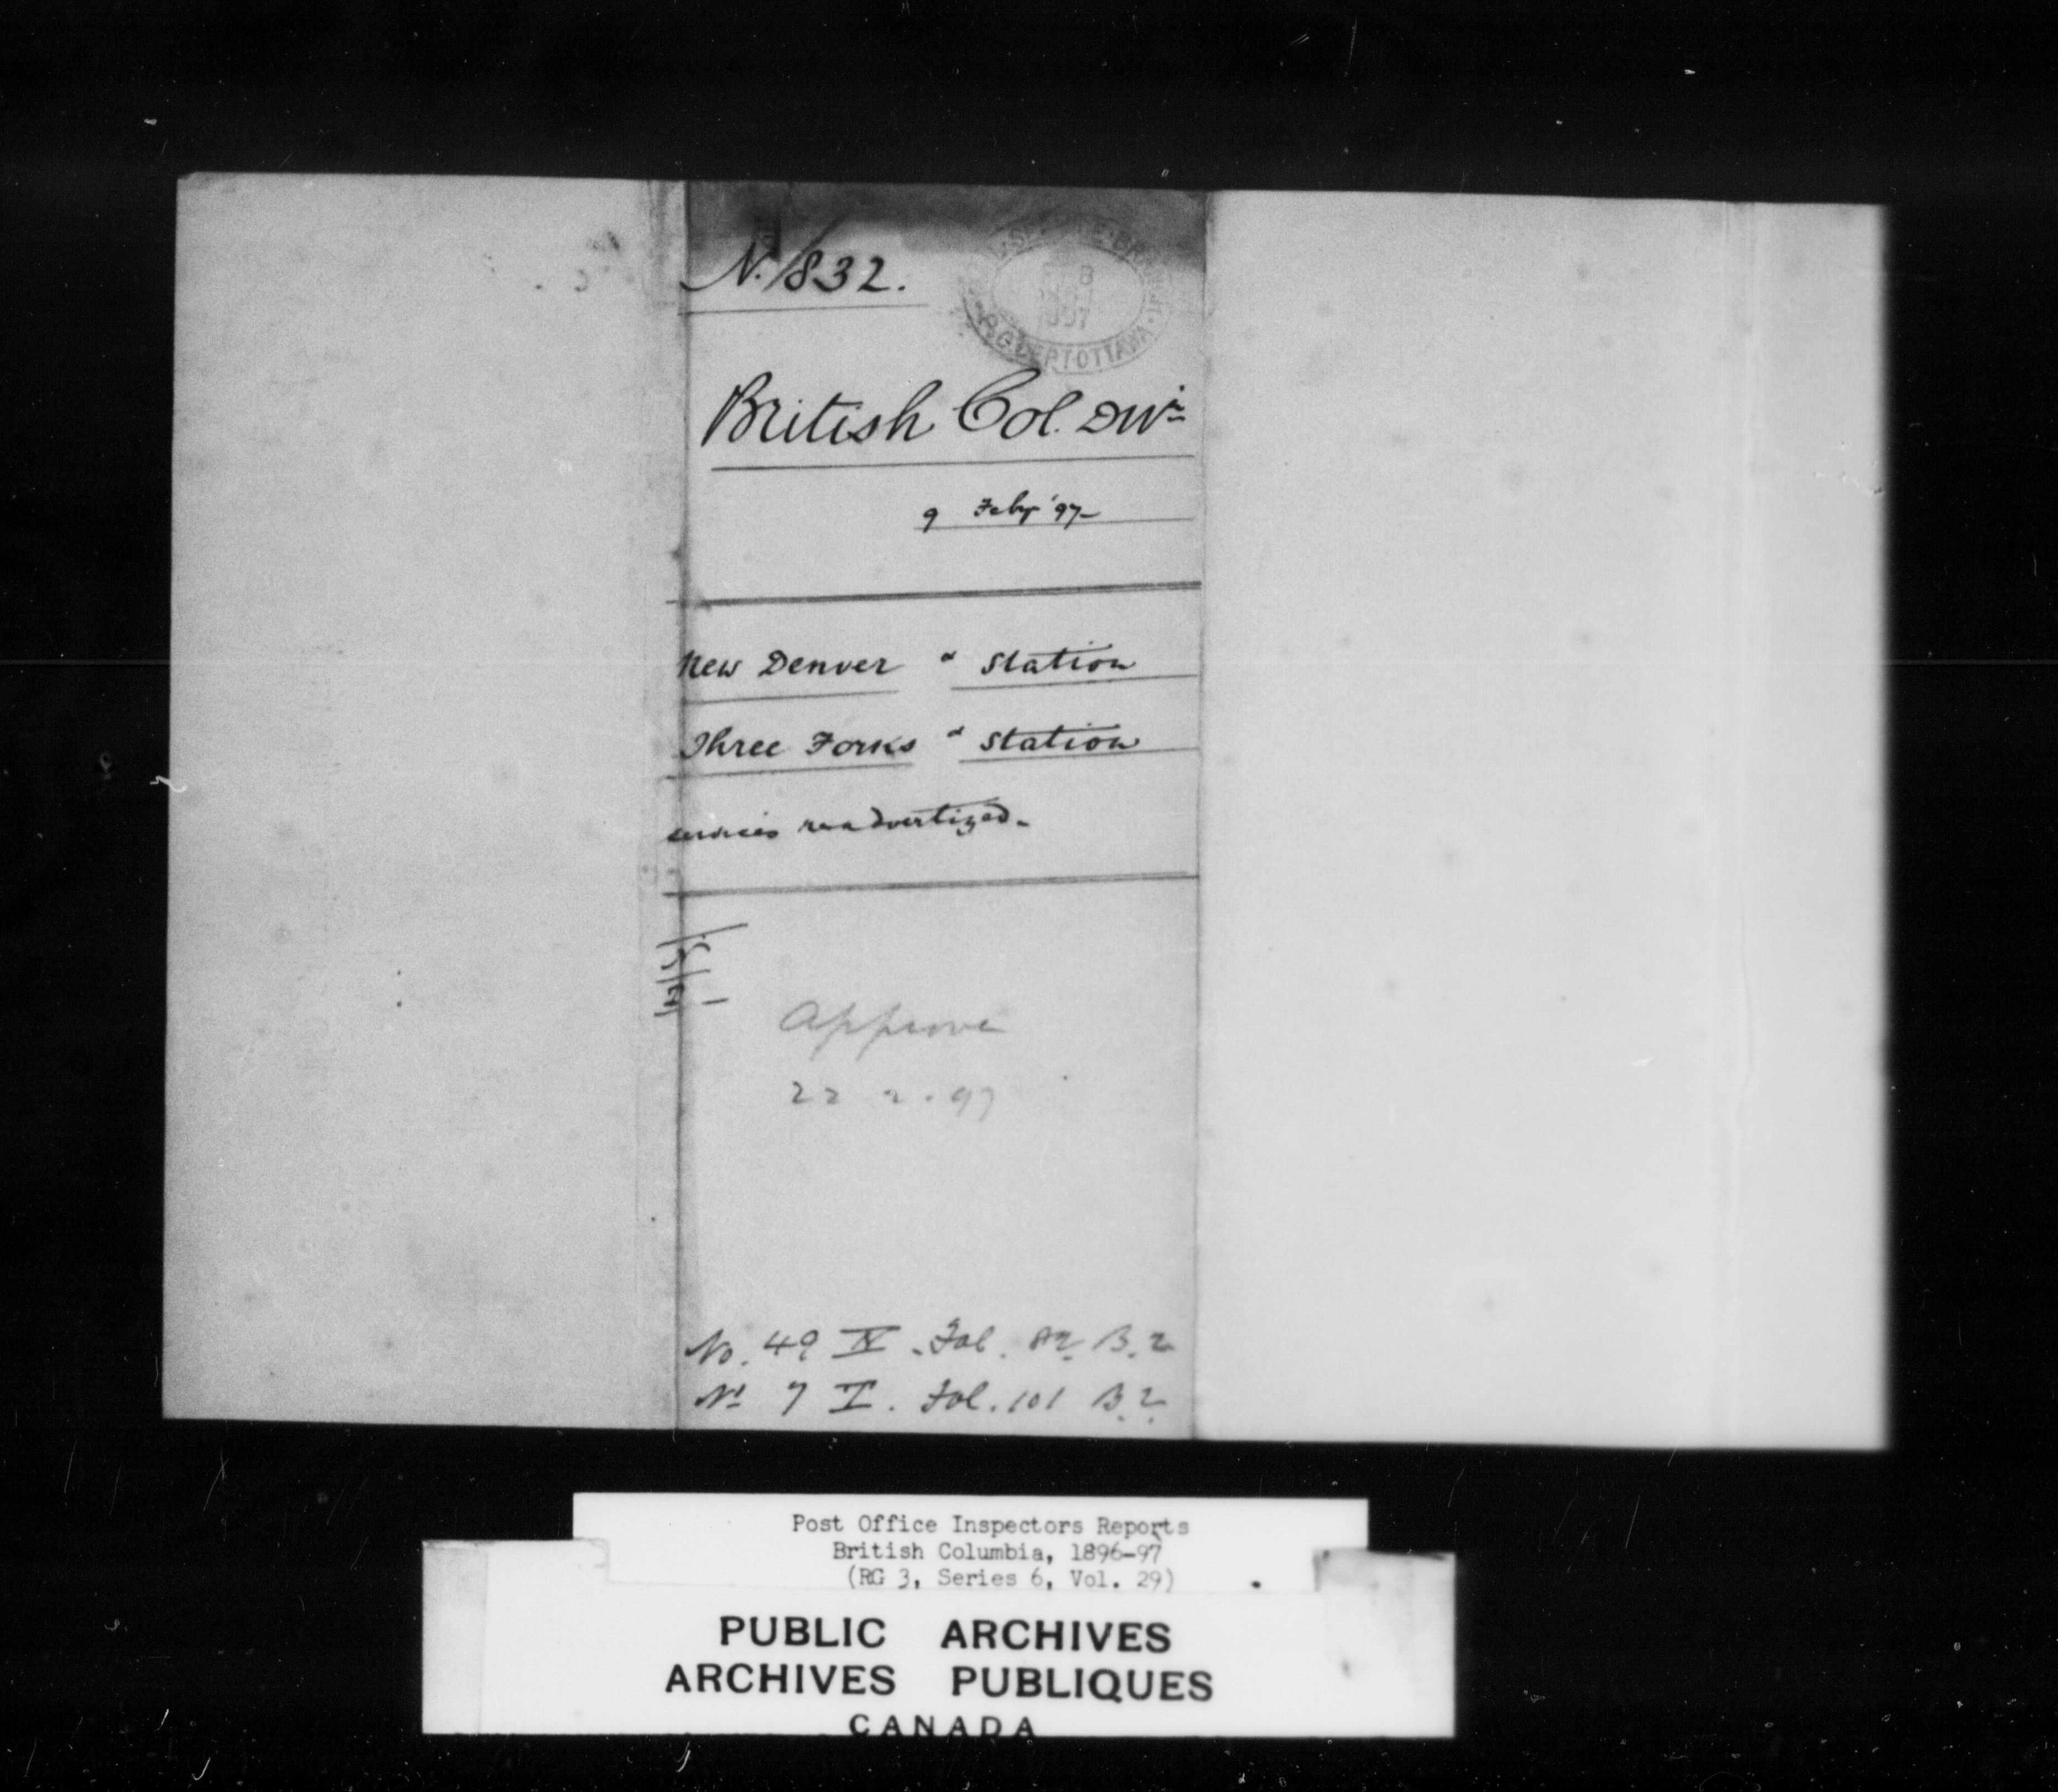 N. 832.
P.O. DEPT OTTAWA
British Col. Divn
9 Feby '97
New Denver & Station
Three Forks & Station
services readvertized.
Approve
22 2. 97
No. 49 IV. Fol. B. 2
No 7 I. Fol. 101 B. 2
Post Office Inspectors Reports
British Columbia, 1896-97
(RG 3, Series 6, Vol. 29)
PUBLIC ARCHIVES
ARCHIVES PUBLIQUES
CANADA